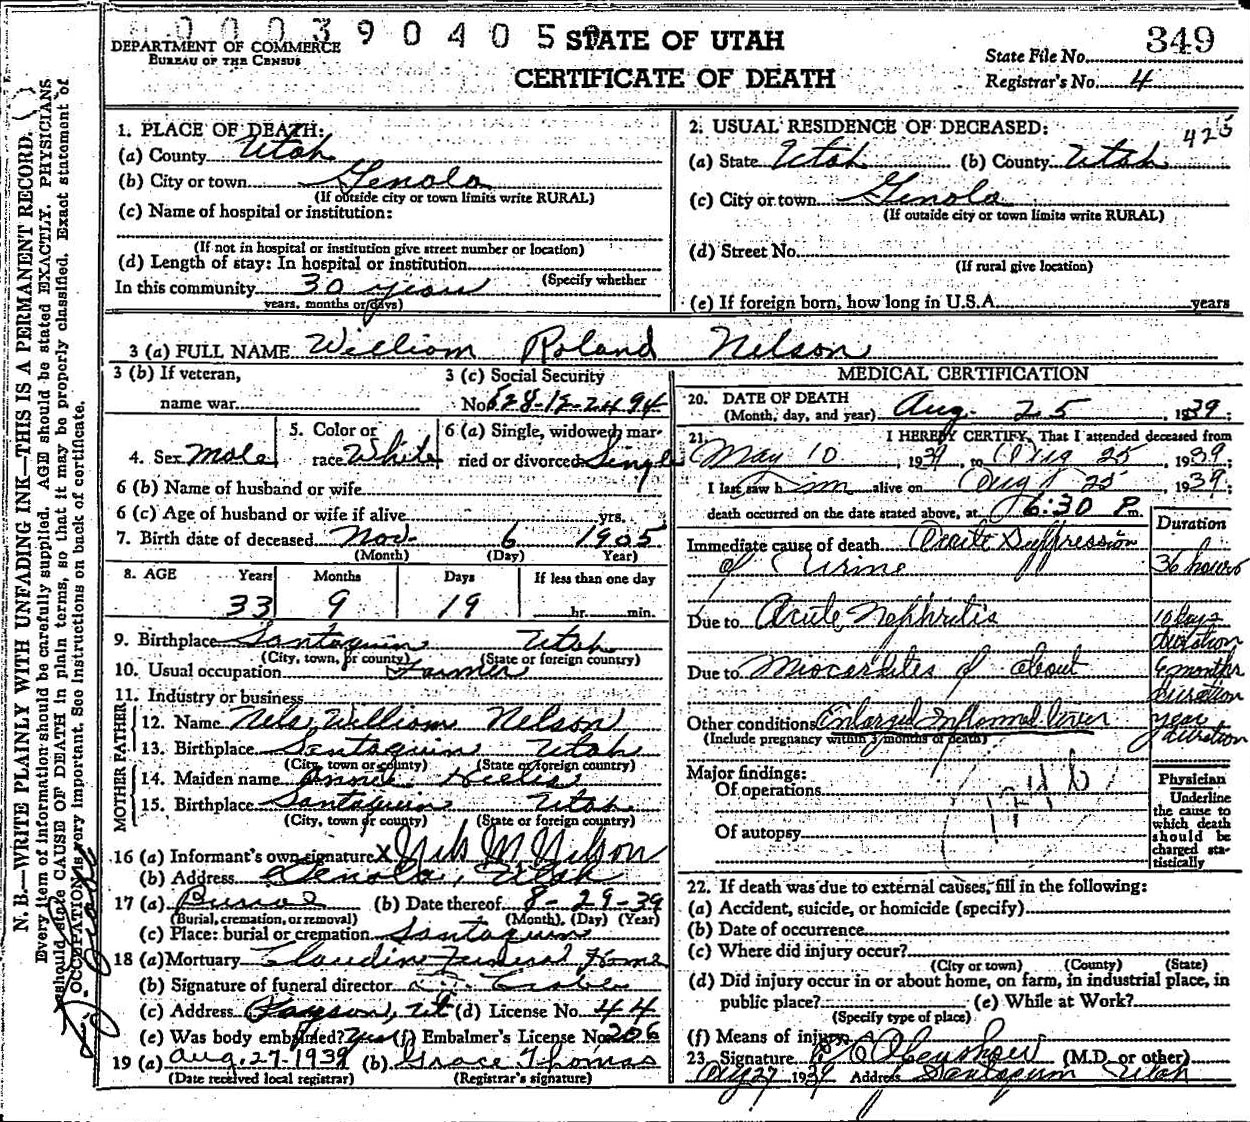 0003904058
STATE OF UTAH
CERTIFICATE OF DEATH
DEPARTMENT OF COMMERCE
BUREAU OF THE CENSUS
State File No. 349
Registrar's No. 4
N. B.—WRITE PLAINLY WITH UNFADING INK—THIS IS A PERMANENT RECORD. ( )
Every item of information should be carefully supplied. AGE should be stated EXACTLY. PHYSICIANS
should state CAUSE OF DEATH in plain terms, so that it may be properly classified. Exact statement of
OCCUPATION is very important. See instructions on back of certificate.
1. PLACE OF DEATH:
(a) County Utah
(b) City or town Genola
(If outside city or town limits write RURAL)
(c) Name of hospital or institution:
(If not in hospital or institution give street number or location)
(d) Length of stay: In hospital or institution
(Specify whether
In this community 30 years
years, months or days)
2. USUAL RESIDENCE OF DECEASED: 425
(a) State Utah (b) County Utah
(c) City or town Genola
(If outside city or town limits write RURAL)
(d) Street No.
(If rural give location)
(e) If foreign born, how long in U.S.A. years
3 (a) FULL NAME William Roland Nelson
3 (b) If veteran,
name war
3 (c) Social Security
No. 528-12-2494
4. Sex Male
5. Color or
race White
6 (a) Single, widowed, mar-
ried or divorced Single
6 (b) Name of husband or wife
6 (c) Age of husband or wife if alive yrs.
7. Birth date of deceased Nov. 6 1905
(Month) (Day) Year)
8. AGE Years Months Days If less than one day
33 9 19 hr. min.
9. Birthplace Santaquin Utah
(City, town, or county) (State or foreign country)
10. Usual occupation Farmer
11. Industry or business
FATHER
12. Name Nels William Nelson
13. Birthplace Santaquin Utah
(City, town or county) (State or foreign country)
MOTHER
14. Maiden name Annie
15. Birthplace Santaquin Utah
(City, town or county) (State or foreign country)
16 (a) Informant's own signature X Nels W Nelson
(b) Address Genola, Utah
17 (a) Burial (b) Date thereof 8-29-39
(Burial, cremation, or removal) (Month) (Day) (Year)
(c) Place: burial or cremation Santaquin
18 (a) Mortuary Funeral Home
(b) Signature of funeral director
(c) Address Payson, Ut (d) License No. 44
(e) Was body embalmed? Yes (f) Embalmer's License No. 206
19 (a) Aug. 27-1939 (b) Grace Thomas
(Date received local registrar) (Registrar's signature)
MEDICAL CERTIFICATION
20. DATE OF DEATH
(Month, day, and year) Aug. 25, 1939;
21. I HEREBY CERTIFY, That I attended deceased from
May 10, 1939, to Aug 25, 1939;
I last saw him alive on Aug 25, 1939;
death occurred on the date stated above, at 6:30 P.m.
Duration
Immediate cause of death Acute Suppression
of Urine 36 hours
Due to Acute Nephritis 10 days
duration
Due to Miocarditis of about 6 months
duration
Other conditions Enlarged Inflamed liver year
duration
(Include pregnancy within 3 months of death)
Major findings:
Of operations
Of autopsy
Physician
Underline
the cause to
which death
should be
charged sta-
tistically
22. If death was due to external causes, fill in the following:
(a) Accident, suicide, or homicide (specify)
(b) Date of occurrence
(c) Where did injury occur?
(City or town) (County) (State)
(d) Did injury occur in or about home, on farm, in industrial place, in
public place? (e) While at Work?
(Specify type of place)
(f) Means of injury
23. Signature (M.D. or other)
Aug 27 1939 Address Santaquin Utah